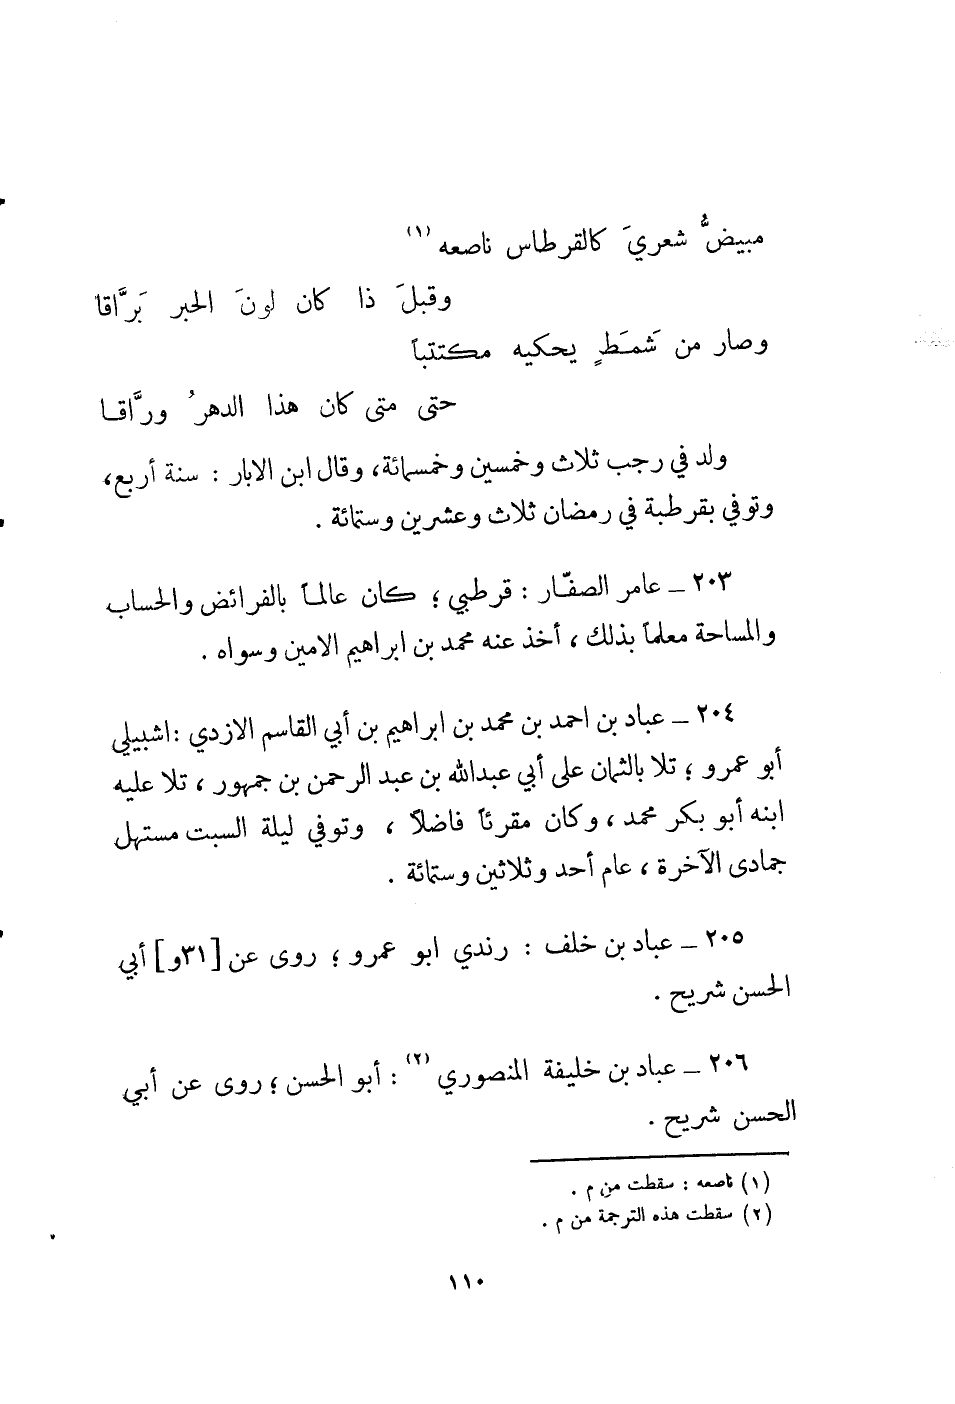 مبيضُّ شعريَ كالقرطاس ناصعه (١)
وقبلَ ذا كان لونَ الحبر بَرَّاقا
وصار من شَمَطٍ يحكيه مكتتباً
حتى متى كان هذا الدهرُ ورَّاقا
ولد في رجب ثلاث وخمسين وخمسمائة، وقال ابن الابار : سنة أربع،
وتوفي بقرطبة في رمضان ثلاث وعشرين وستمائة .
٢٠٣ ـ عامر الصفّار : قرطبي ؛ كان عالماً بالفرائض والحساب
والمساحة معلماً بذلك ، أخذ عنه محمد بن ابراهيم الامين وسواه .
٢٠٤ ـ عباد بن احمد بن محمد بن ابراهيم بن أبي القاسم الازدي : اشبيلي
أبو عمرو ؛ تلا بالثمان على أبي عبدالله بن عبد الرحمن بن جمهور ، تلا عليه
ابنه أبو بكر محمد ، وكان مقرئاً فاضلاً ، وتوفي ليلة السبت مستهل
جمادى الآخرة ، عام أحد وثلاثين وستمائة .
٢٠٥ ـ عباد بن خلف : رندي ابو عمرو ؛ روى عن [٣١و] أبي
الحسن شريح .
٢٠٦ ـ عباد بن خليفة المنصوري (٢) : أبو الحسن ؛ روى عن أبي
الحسن شريح .
(١) ناصعه : سقطت من م .
(٢) سقطت هذه الترجمة من م .
١١٠